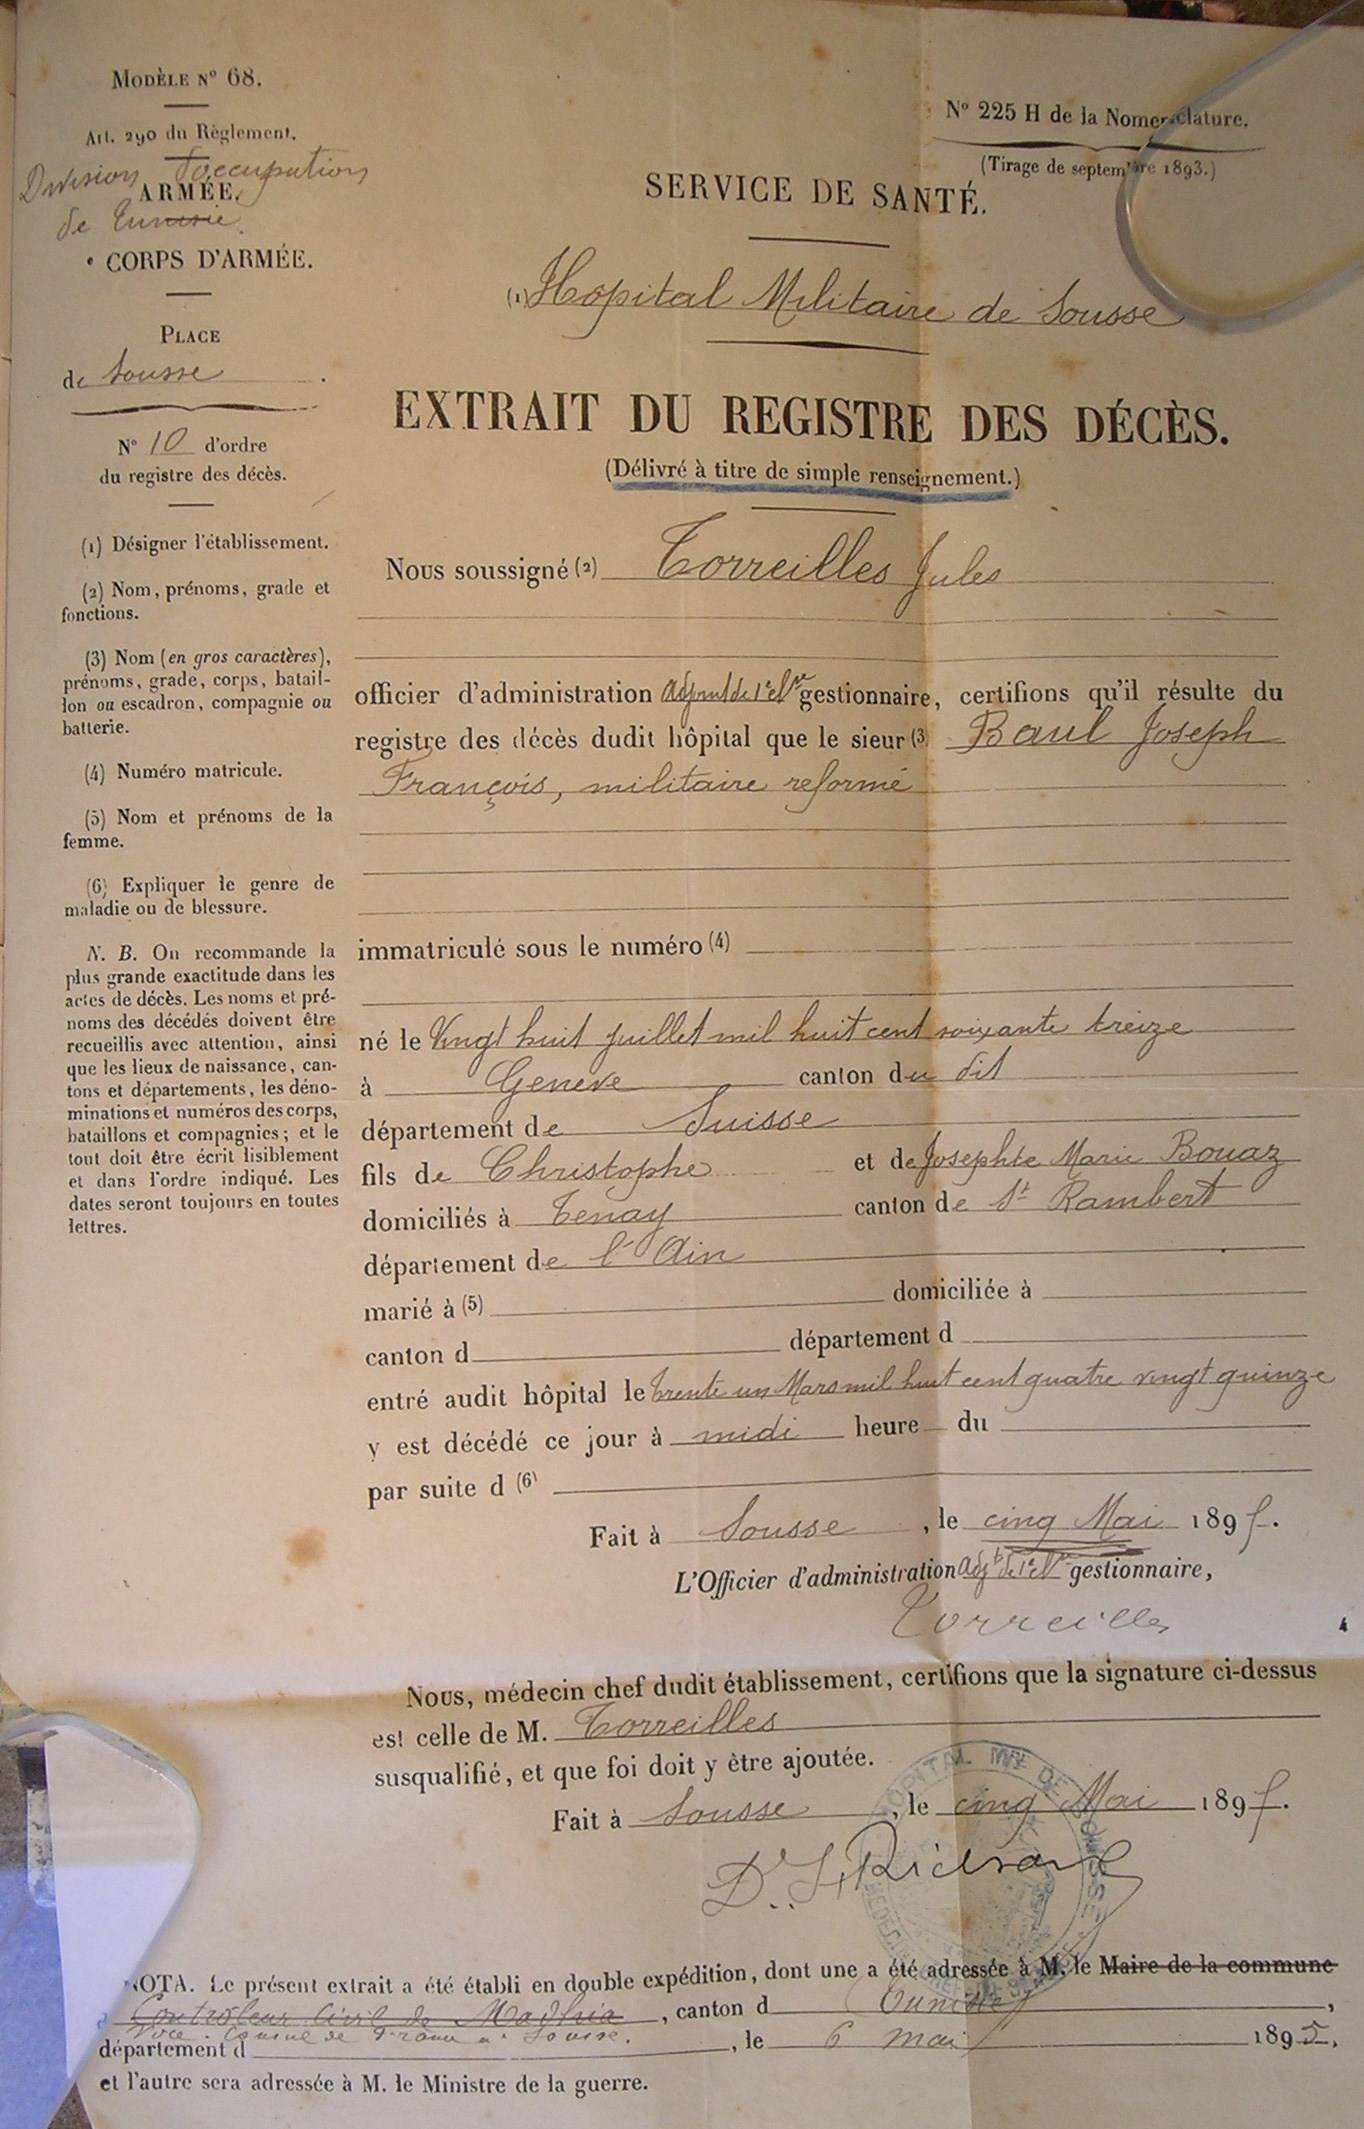 MODÈLE N° 68.
Art. 290 du Règlement.
Division d'occupation
ARMÉE.
de Tunisie.
CORPS D'ARMÉE.
PLACE
de Sousse.
N° 10 d'ordre
du registre des décès.
(1) Désigner l'établissement.
(2) Nom, prénoms, grade et
fonctions.
(3) Nom (en gros caractères),
prénoms, grade, corps, batail-
lon ou escadron, compagnie ou
batterie.
(4) Numéro matricule.
(5) Nom et prénoms de la
femme.
(6) Expliquer le genre de
maladie ou de blessure.
N. B. On recommande la
plus grande exactitude dans les
actes de décès. Les noms et pré-
noms des décédés doivent être
recueillis avec attention, ainsi
que les lieux de naissance, can-
tons et départements, les déno-
minations et numéros des corps,
bataillons et compagnies; et le
tout doit être écrit lisiblement
et dans l'ordre indiqué. Les
dates seront toujours en toutes
lettres.
N° 225 H de la Nomenclature.
(Tirage de septembre 1893.)
SERVICE DE SANTÉ.
(1) Hôpital Militaire de Sousse
EXTRAIT DU REGISTRE DES DÉCÈS.
(Délivré à titre de simple renseignement.)
Nous soussigné (2) Torreilles Jules
officier d'administration adjoint de 1e cl. gestionnaire, certifions qu'il résulte du
registre des décès dudit hôpital que le sieur (3) Baul Joseph
François, militaire reformé
immatriculé sous le numéro (4)
né le Vingt huit juillet mil huit cent soixante treize
à Genève canton du dit
département de Suisse
fils de Christophe et de Josephte Marie Bouaz
domiciliés à Tenay canton de St Rambert
département de l'Ain
marié à (5) domiciliée à
canton d département d
entré audit hôpital le trente un Mars mil huit cent quatre vingt quinze
y est décédé ce jour à midi heure du
par suite d (6)
Fait à Sousse, le cinq Mai 1895.
L'Officier d'administration adjt de 1e cl. gestionnaire,
Torreilles
4
Nous, médecin chef dudit établissement, certifions que la signature ci-dessus
est celle de M. Torreilles
susqualifié, et que foi doit y être ajoutée.
Fait à Sousse, le cinq Mai 1895.
HOPITAL MRE DE SOUSSE
NOTA. Le présent extrait a été établi en double expédition, dont une a été adressée à M. le Maire de la commune
d Contrôleur Civil de Madhia, canton d Tunisie,
Vice-Consul de France à Sousse.
département d , le 6 mai 1895,
et l'autre sera adressée à M. le Ministre de la guerre.